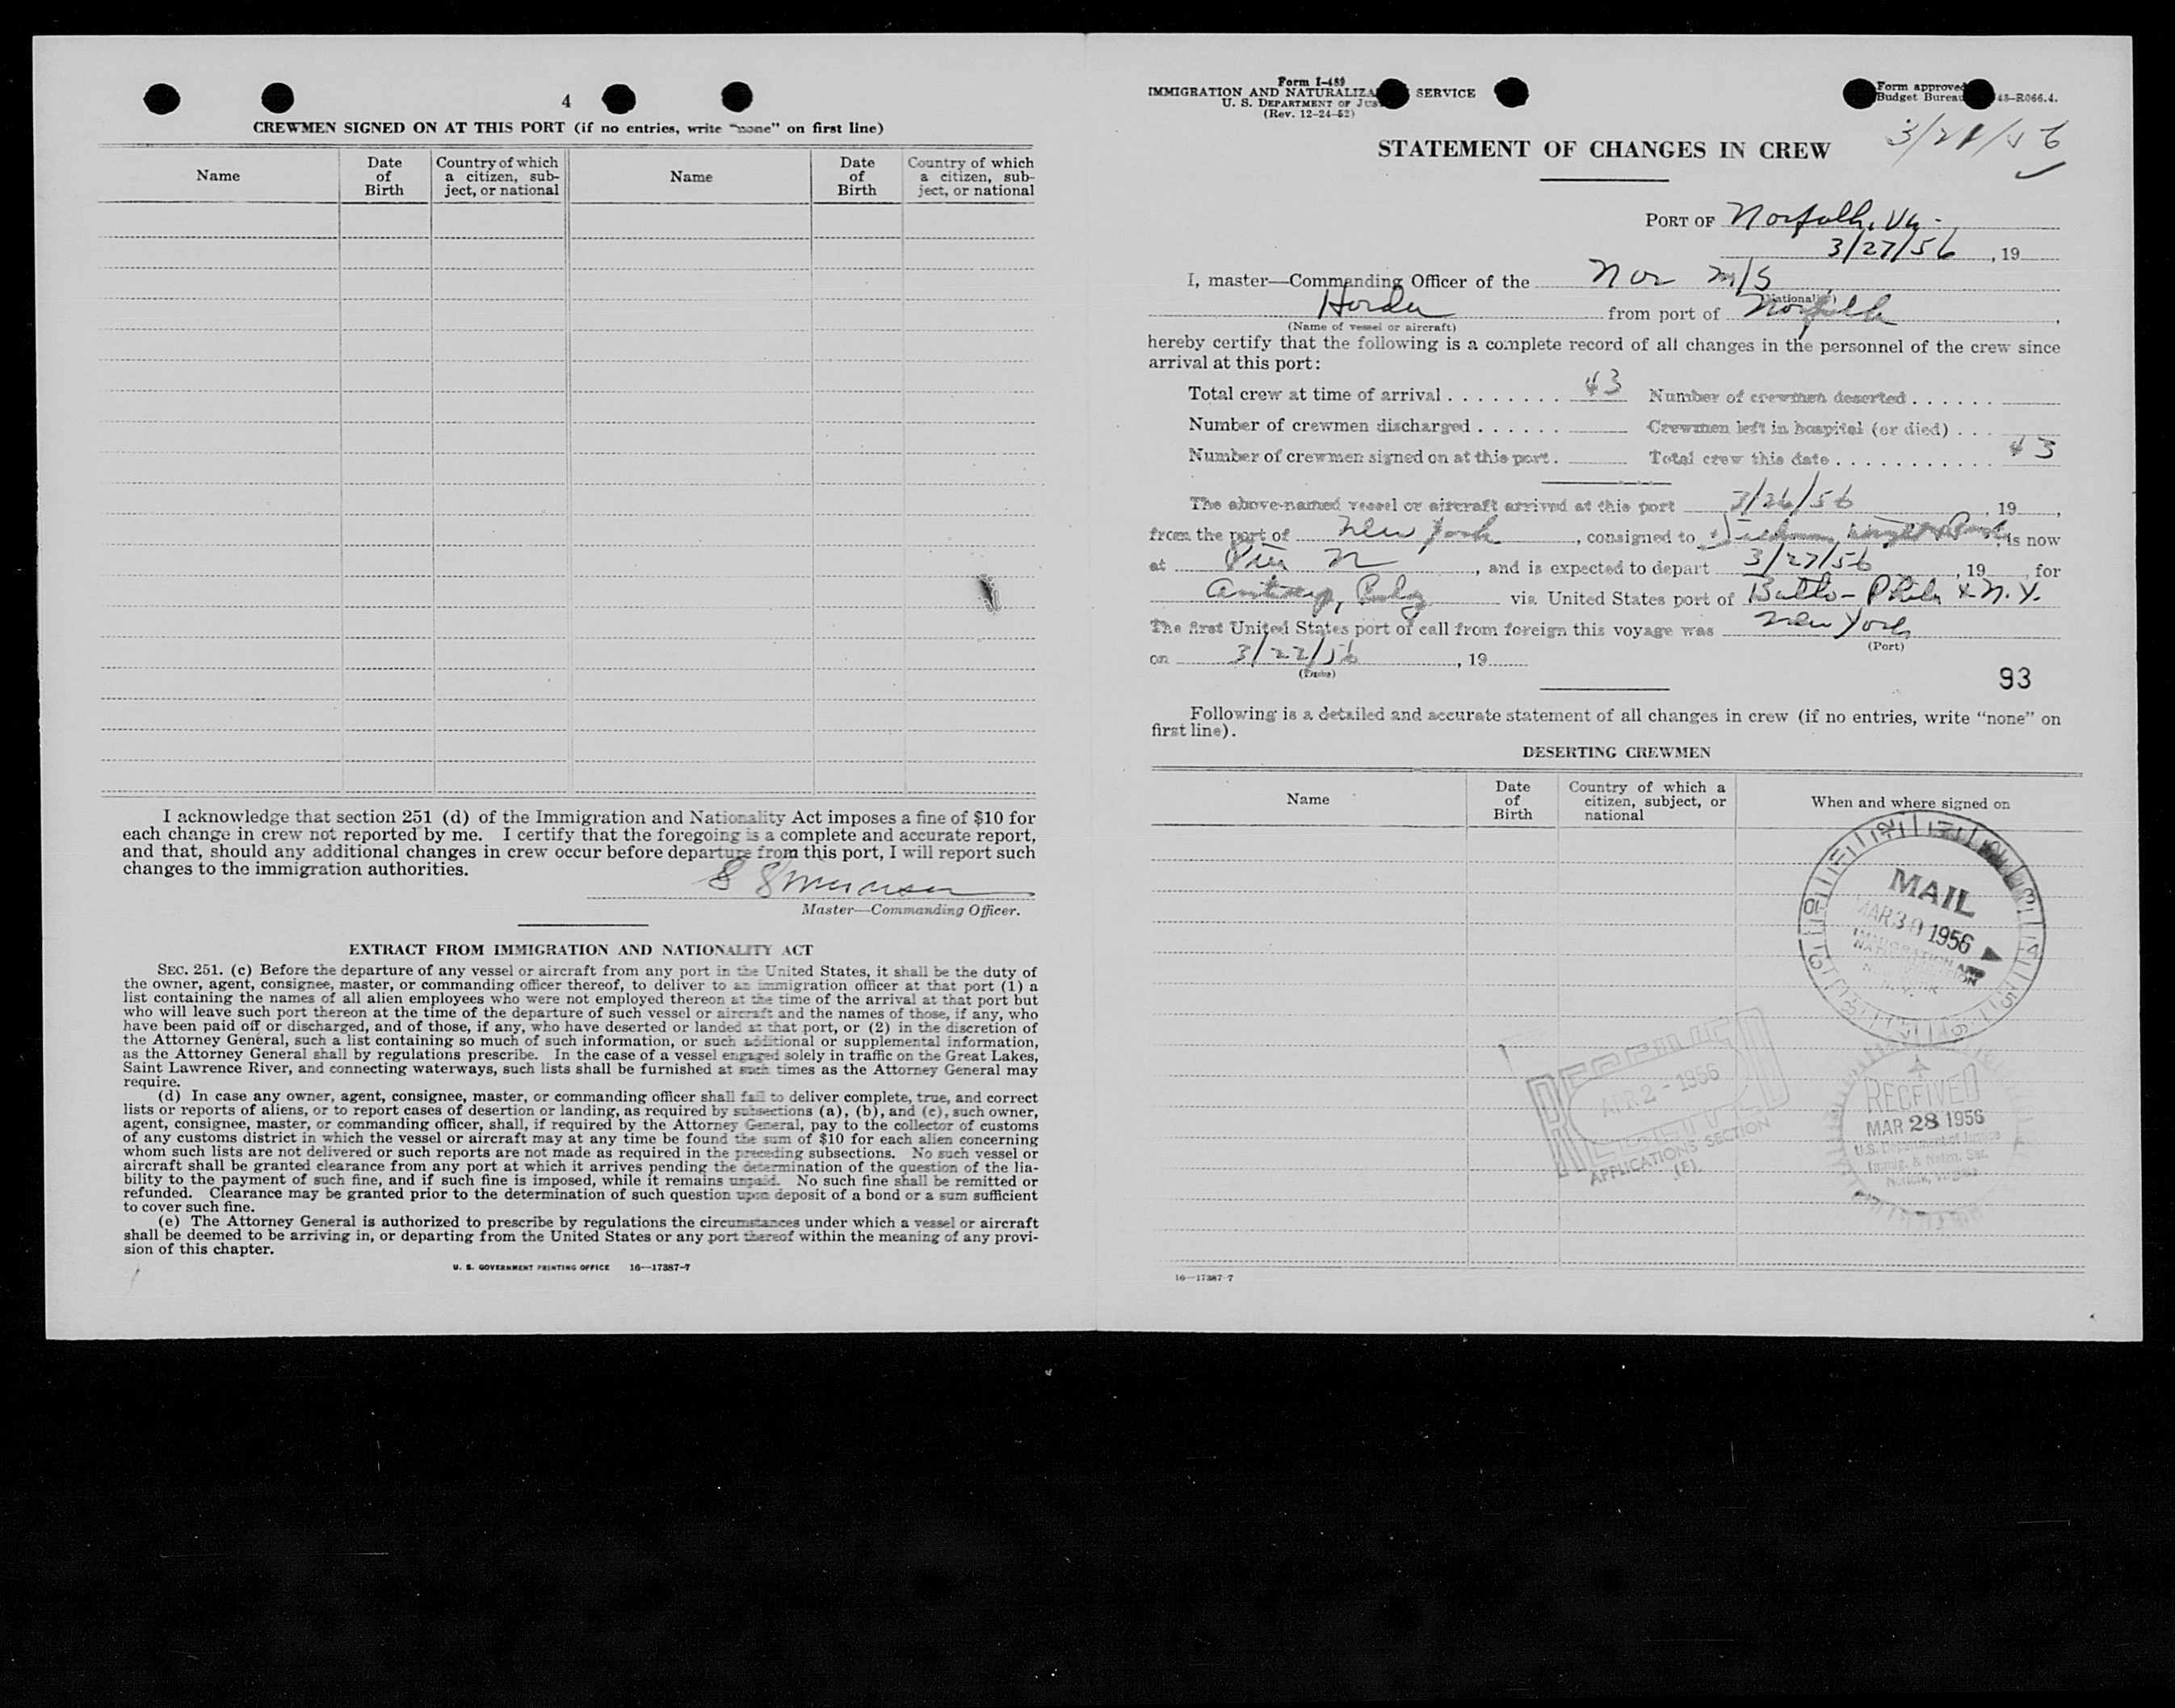 4
CREWMEN SIGNED ON AT THIS PORT (if no entries, write "none" on first line)
Name
Date of Birth
Country of which a citizen, subject, or national
Name
Date of Birth
Country of which a citizen, subject, or national
I acknowledge that section 251 (d) of the Immigration and Nationality Act imposes a fine of $10 for
each change in crew not reported by me. I certify that the foregoing is a complete and accurate report,
and that, should any additional changes in crew occur before departure from this port, I will report such
changes to the immigration authorities.
Master—Commanding Officer.
EXTRACT FROM IMMIGRATION AND NATIONALITY ACT
SEC. 251. (c) Before the departure of any vessel or aircraft from any port in the United States, it shall be the duty of
the owner, agent, consignee, master, or commanding officer thereof, to deliver to an immigration officer at that port (1) a
list containing the names of all alien employees who were not employed thereon at the time of the arrival at that port but
who will leave such port thereon at the time of the departure of such vessel or aircraft and the names of those, if any, who
have been paid off or discharged, and of those, if any, who have deserted or landed at that port, or (2) in the discretion of
the Attorney General, such a list containing so much of such information, or such additional or supplemental information,
as the Attorney General shall by regulations prescribe. In the case of a vessel engaged solely in traffic on the Great Lakes,
Saint Lawrence River, and connecting waterways, such lists shall be furnished at such times as the Attorney General may
require.
(d) In case any owner, agent, consignee, master, or commanding officer shall fail to deliver complete, true, and correct
lists or reports of aliens, or to report cases of desertion or landing, as required by subsections (a), (b), and (c), such owner,
agent, consignee, master, or commanding officer, shall, if required by the Attorney General, pay to the collector of customs
of any customs district in which the vessel or aircraft may at any time be found the sum of $10 for each alien concerning
whom such lists are not delivered or such reports are not made as required in the preceding subsections. No such vessel or
aircraft shall be granted clearance from any port at which it arrives pending the determination of the question of the lia-
bility to the payment of such fine, and if such fine is imposed, while it remains unpaid. No such fine shall be remitted or
refunded. Clearance may be granted prior to the determination of such question upon deposit of a bond or a sum sufficient
to cover such fine.
(e) The Attorney General is authorized to prescribe by regulations the circumstances under which a vessel or aircraft
shall be deemed to be arriving in, or departing from the United States or any port thereof within the meaning of any provi-
sion of this chapter.
U. S. GOVERNMENT PRINTING OFFICE 16—17387-7
Form I-489
IMMIGRATION AND NATURALIZA SERVICE
U. S. DEPARTMENT OF JUS
(Rev. 12-24-52)
Form approved
Budget Bureau 43-R066.4.
STATEMENT OF CHANGES IN CREW
PORT OF Norfolk, Va.
3/27/56, 19
I, master—Commanding Officer of the Nor m/s
(Nationality)
from port of Norfolk,
(Name of vessel or aircraft)
hereby certify that the following is a complete record of all changes in the personnel of the crew since
arrival at this port:
Total crew at time of arrival 43 Number of crewmen deserted
Number of crewmen discharged Crewmen left in hospital (or died)
Number of crewmen signed on at this port. Total crew this date 43
The above-named vessel or aircraft arrived at this port 3/26/56, 19,
from the port of New York, consigned to is now
at Pier N, and is expected to depart 3/27/56, 19 for
via United States port of Balto - Phila & N.Y.
The first United States port of call from foreign this voyage was New York
(Port)
on 3/22/56, 19
(Date)
93
Following is a detailed and accurate statement of all changes in crew (if no entries, write "none" on
first line).
DESERTING CREWMEN
Name
Date of Birth
Country of which a citizen, subject, or national
When and where signed on
MAIL
MAR 30 1956
IMMIGRATION AND
RECEIVED
APR 2 - 1956
APPLICATIONS SECTION
(E)
RECEIVED
MAR 28 1956
U.S. Department of Justice
Immig. & Natzn. Ser.
Norfolk, Virginia
16—17387-7